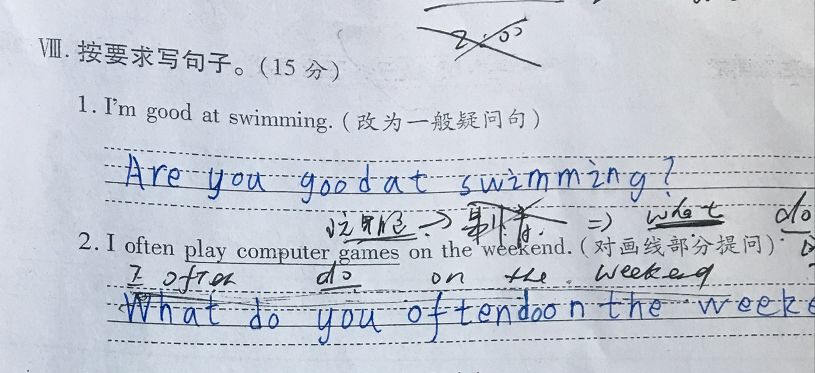 2:00
Ⅷ. 按要求写句子。(15 分)
1. I'm good at swimming. (改为一般疑问句)
Are you good at swimming?
→ ⇒ what do
2. I often play computer games on the weekend. (对画线部分提问)
I often do on the weekend
What do you often do on the weeke